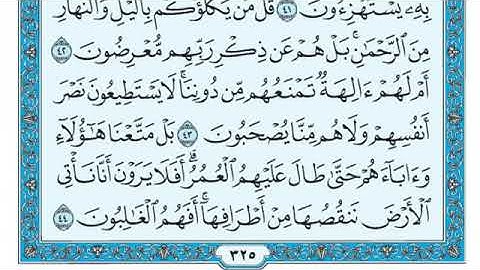 بِهِۦ يَسۡتَهۡزِءُونَ ٤١ قُلۡ مَن يَكۡلَؤُكُم بِٱلَّيۡلِ وَٱلنَّهَارِ
مِنَ ٱلرَّحۡمَٰنِۚ بَلۡ هُمۡ عَن ذِكۡرِ رَبِّهِم مُّعۡرِضُونَ ٤٢
أَمۡ لَهُمۡ ءَالِهَةٞ تَمۡنَعُهُم مِّن دُونِنَاۚ لَا يَسۡتَطِيعُونَ نَصۡرَ
أَنفُسِهِمۡ وَلَا هُم مِّنَّا يُصۡحَبُونَ ٤٣ بَلۡ مَتَّعۡنَا هَٰٓؤُلَآءِ
وَءَابَآءَهُمۡ حَتَّىٰ طَالَ عَلَيۡهِمُ ٱلۡعُمُرُۗ أَفَلَا يَرَوۡنَ أَنَّا نَأۡتِي
ٱلۡأَرۡضَ نَنقُصُهَا مِنۡ أَطۡرَافِهَآۚ أَفَهُمُ ٱلۡغَٰلِبُونَ ٤٤
٣٢٥